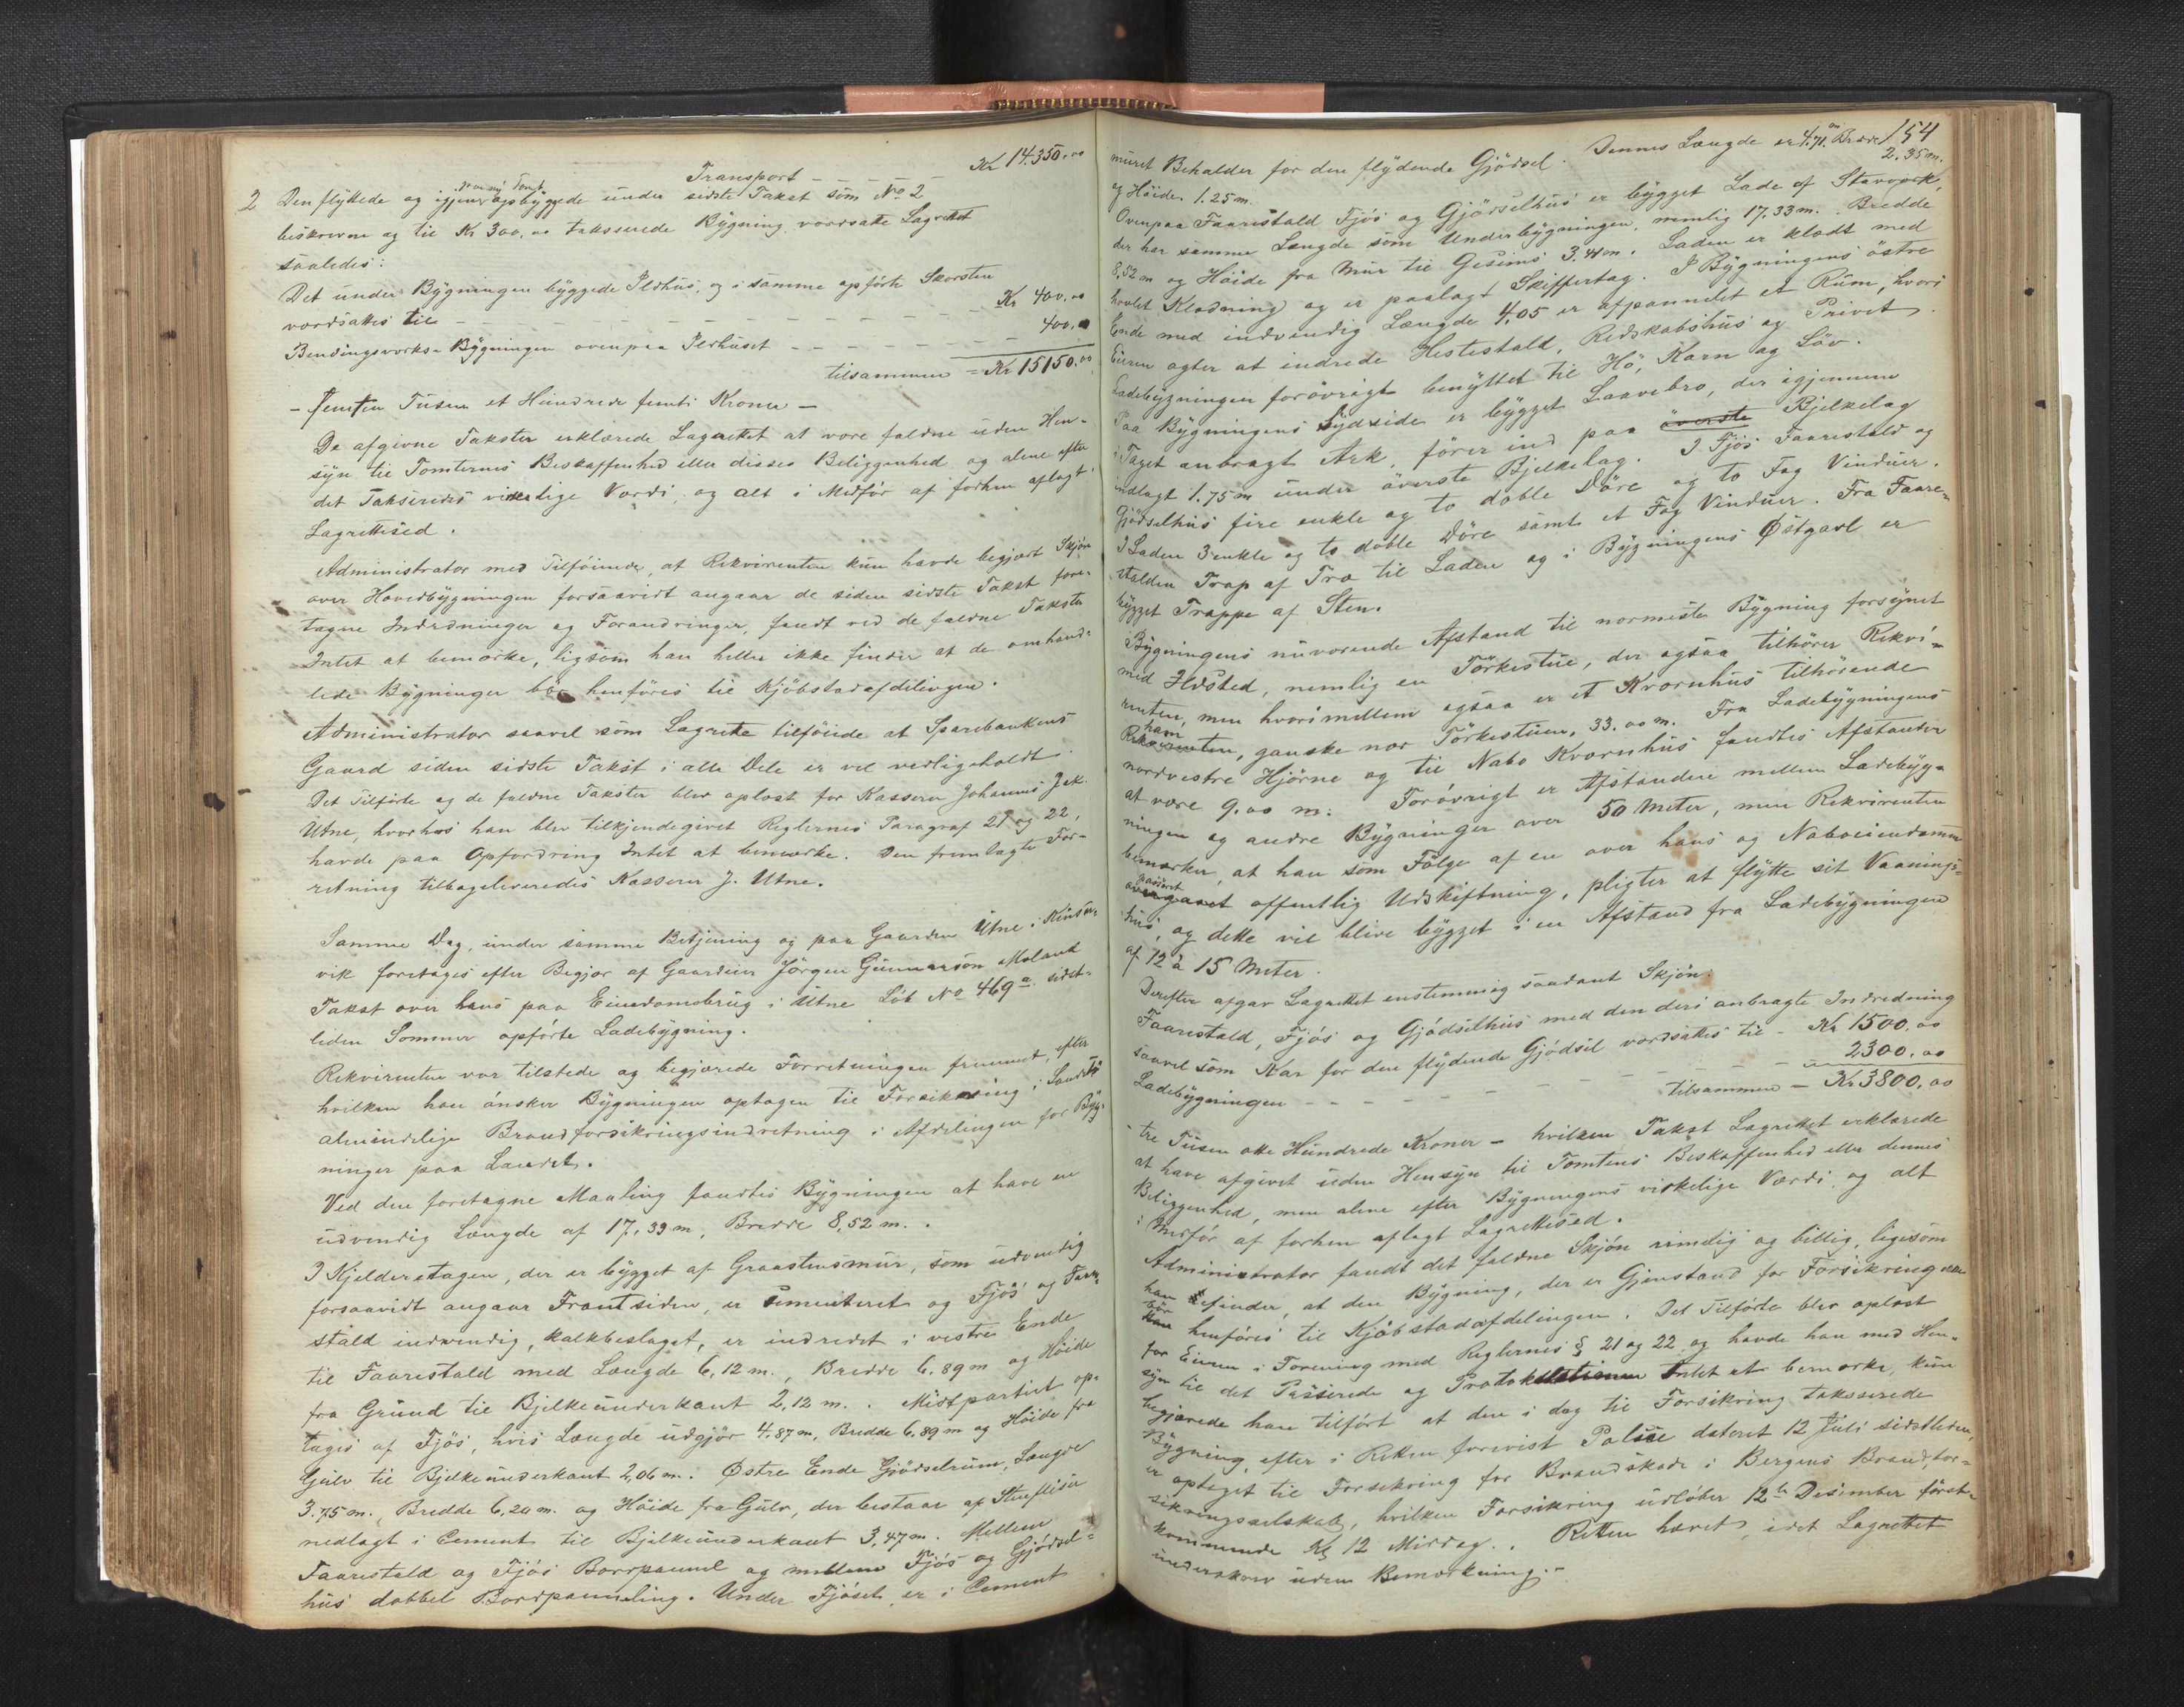 Transport - - - - - Kr 14.350.00
2 Den flyttede og igjen paa ny Tomt opbyggede under sidste Takst som No 2
beskrevne og til Kr 300,00 taksserede Bygning værdsatte Lagrettet
saaledes:
Det under Bygningen byggede Ildhus, og i samme opførte Skorsten
værdsattes til - - - - - - - - - - Kr 400.00
Bindingsværks-Bygningen ovenpaa Ildhuset - - - - - 400.00
tilsammen = Kr 15150.00
- femten Tusen et Hundrede femti Kroner -
De afgivne Takster erklærede Lagrettet at være faldne uden Hen-
syn til Tomternes Beskaffenhed eller disses Beliggenhed og alene efter
det Takseredes virkelige Værdi, og alt i Medfør af forhen aflagt
Lagretteed.
Administrator med Tilføiende, at Rekvirenten kun havde begjært Skjøn
over Hovedbygningen forsaavidt angaar de siden sidste Takst fore-
tagne Indredninger og Forandringer, fandt ved de faldne Takster
Intet at bemærke, ligesom han heller ikke finder at de omhand-
lede Bygninger bør henføres til Kjøbstadafdelingen.
Administrator saavel som Lagrette tilføiede at Sparebankens
Gaard siden sidste Takst i alle Dele er vel vedligeholdt.
Det Tilførte og de faldne Takster blev oplæst for Kasserer Johannes Jak.
Utne, hvorhos han blev tilkjendegivet Reglernes Paragraf 21 og 22,
havde paa Opfordring Intet at bemærke. Den fremlagte For-
retning tilbageleveredes Kasserer J. Utne.
Samme Dag, under samme Betjening og paa Gaarden Utne i Kinser-
vik foretages efter Begjær af Gaardeier Jørgen Gunnarsøn Meland
Takst over hans paa Eiendomsbrug i Utne Løb No 469a sidst-
liden Sommer opførte Ladebygning.
Rekvirenten var tilstede og begjærede Forretningen fremmet, efter
hvilken han ønsker Bygningen optagen til Forsikring i Landets
almindelige Brandforsikringsindretning i Afdelingen for Byg-
ninger paa Landet.
Ved den foretagne Maaling fandtes Bygningen at have en
udvendig Længde af 17,33 m, Bredde 8,52 m.
I Kjelderetagen, der er bygget af Graastensmur, som udvendig
forsaavidt angaar Frontsiden, er cementeret og Fjøs og Faare-
stald indvendig, kalkbeslaget, er indredet i vestre Ende
til Faarestald med Længde 6,12 m., Bredde 6.89 m og Høide
fra Grund til Bjelkeunderkant 2,12 m. Midtpartiet op-
tages af Fjøs, hvis Længde udgjør 4.87 m, Bredde 6.89 m og Høide fra
Gulv til Bjelkeunderkant 2,06 m. Østre Ende Gjødselrum, Længde
3.75 m., Bredde 6,20 m. og Høide fra Gulv, der bestaar af Stenfliser
nedlagt i Cement til Bjelkeunderkant 3,47 m. Mellem
Faarestald og Fjøs Bordpannel og mellem Fjøs og Gjødsel-
hus dobbel Bordpanneling. Under Fjøset er i Cement
154
muret Beholder for den flydende Gjødsel. Dennes Længde er 4.71 m Bredde 2.35 m.
og Høiden 1.25 m.
Ovenpaa Faarestald Fjøs og Gjødselhus er bygget Lade af Stavværk,
der har samme Længde som Underbygningen, nemlig 17.33 m. Bredde
8,52 m og Høide fra Mur til Gesims 3.41 m. Laden er klædt med
høvlet Klædning og er paalagt Skiffertag. I Bygningens østre
Ende med indvendig Længde 4,05 er afpannelet et Rum, hvori
Eieren agter at indrede Hestestald, Redskabshus og Privet.
Ladebygningen forøvrigt benyttet til Hø, Korn og Løv.
Paa Bygningens Sydside er bygget Laavebro, der igjennem
i Taget anbragt Ark, fører ind paa øverste Bjelkelag
indlagt 1.75 m under øverste Bjelkelag. I Fjøs Faarestald og
Gjødselhus fire enkle og to doble Døre og to Fag Vinduer.
I Laden 3 enkle og to doble Døre samt et Fag Vinduer. Fra Faare-
stalden Trap af Træ til Laden og i Bygningens Østgavl er
bygget Trappe af Sten.
Bygningens nuværende Afstand til nærmeste Bygning forsynet
med Ildsted, nemlig en Tørkestue, der ogsaa tilhører Rekvi-
renten, men hvorimellem ogsaa er et Kværnhus tilhørende
ham Rekvirenten, ganske nær Tørkestuen, 33.00 m. Fra Ladebygningens
nordvestre Hjørne og til Nabo Kværnhus fandtes Afstanden
at være 9.00 m. Forøvrigt er Afstanden mellem Ladebyg-
ningen og andre Bygninger over 50 Meter, men Rekvirenten
bemærker, at han som Følge af en over hans og Naboeiendomme
passeret overgaaet offentlig Udskiftning, pligter at flytte sit Vaanings-
hus, og dette vil blive bygget i en Afstand fra Ladebygningen
af 12 à 15 Meter.
Derefter afgav Lagrettet enstemmig saadant Skjøn:
Faarestald, Fjøs og Gjødselhus med den deri anbragte Indredning
saavel som Kar for den flydende Gjødsel værdsattes til - Kr 1500.00
Ladebygningen - - - - - - - 2300.00
tilsammen - Kr 3800.00
tre Tusen otte Hundrede Kroner - hvilken Takst Lagrettet erklærede
at have afgivet uden Hensyn til Tomtens Beskaffenhed eller dennes
Beliggenhed, men alene efter Bygningens virkelige Værdi, og alt
i Medfør af forhen aflagt Lagretteed.
Administrator fandt det faldne Skjøn rimelig og billig, ligesom
han befinder, at den Bygning, der er Gjenstand for Forsikring ikke
bør kan henføres til Kjøbstadafdelingen. Det Tilførte blev oplæst
for Eieren i Forening med Reglernes § 21 og 22 og havde han med Hen-
syn til det Passerede og Protokollationen Intet at bemærke, kun
begjærede han tilført at den i dag til Forsikring taksserede
Bygning, efter i Retten forevist Police dateret 12 Juli sidstleden,
er optaget til Forsikring for Brandskade i Bergens Brandfor-
sikringsselskab, hvilken Forsikring udløber 12te Desember først-
kommende Kl 12 Middag. Retten hævet, idet Lagrettet
underskrev uden Bemærkning.-